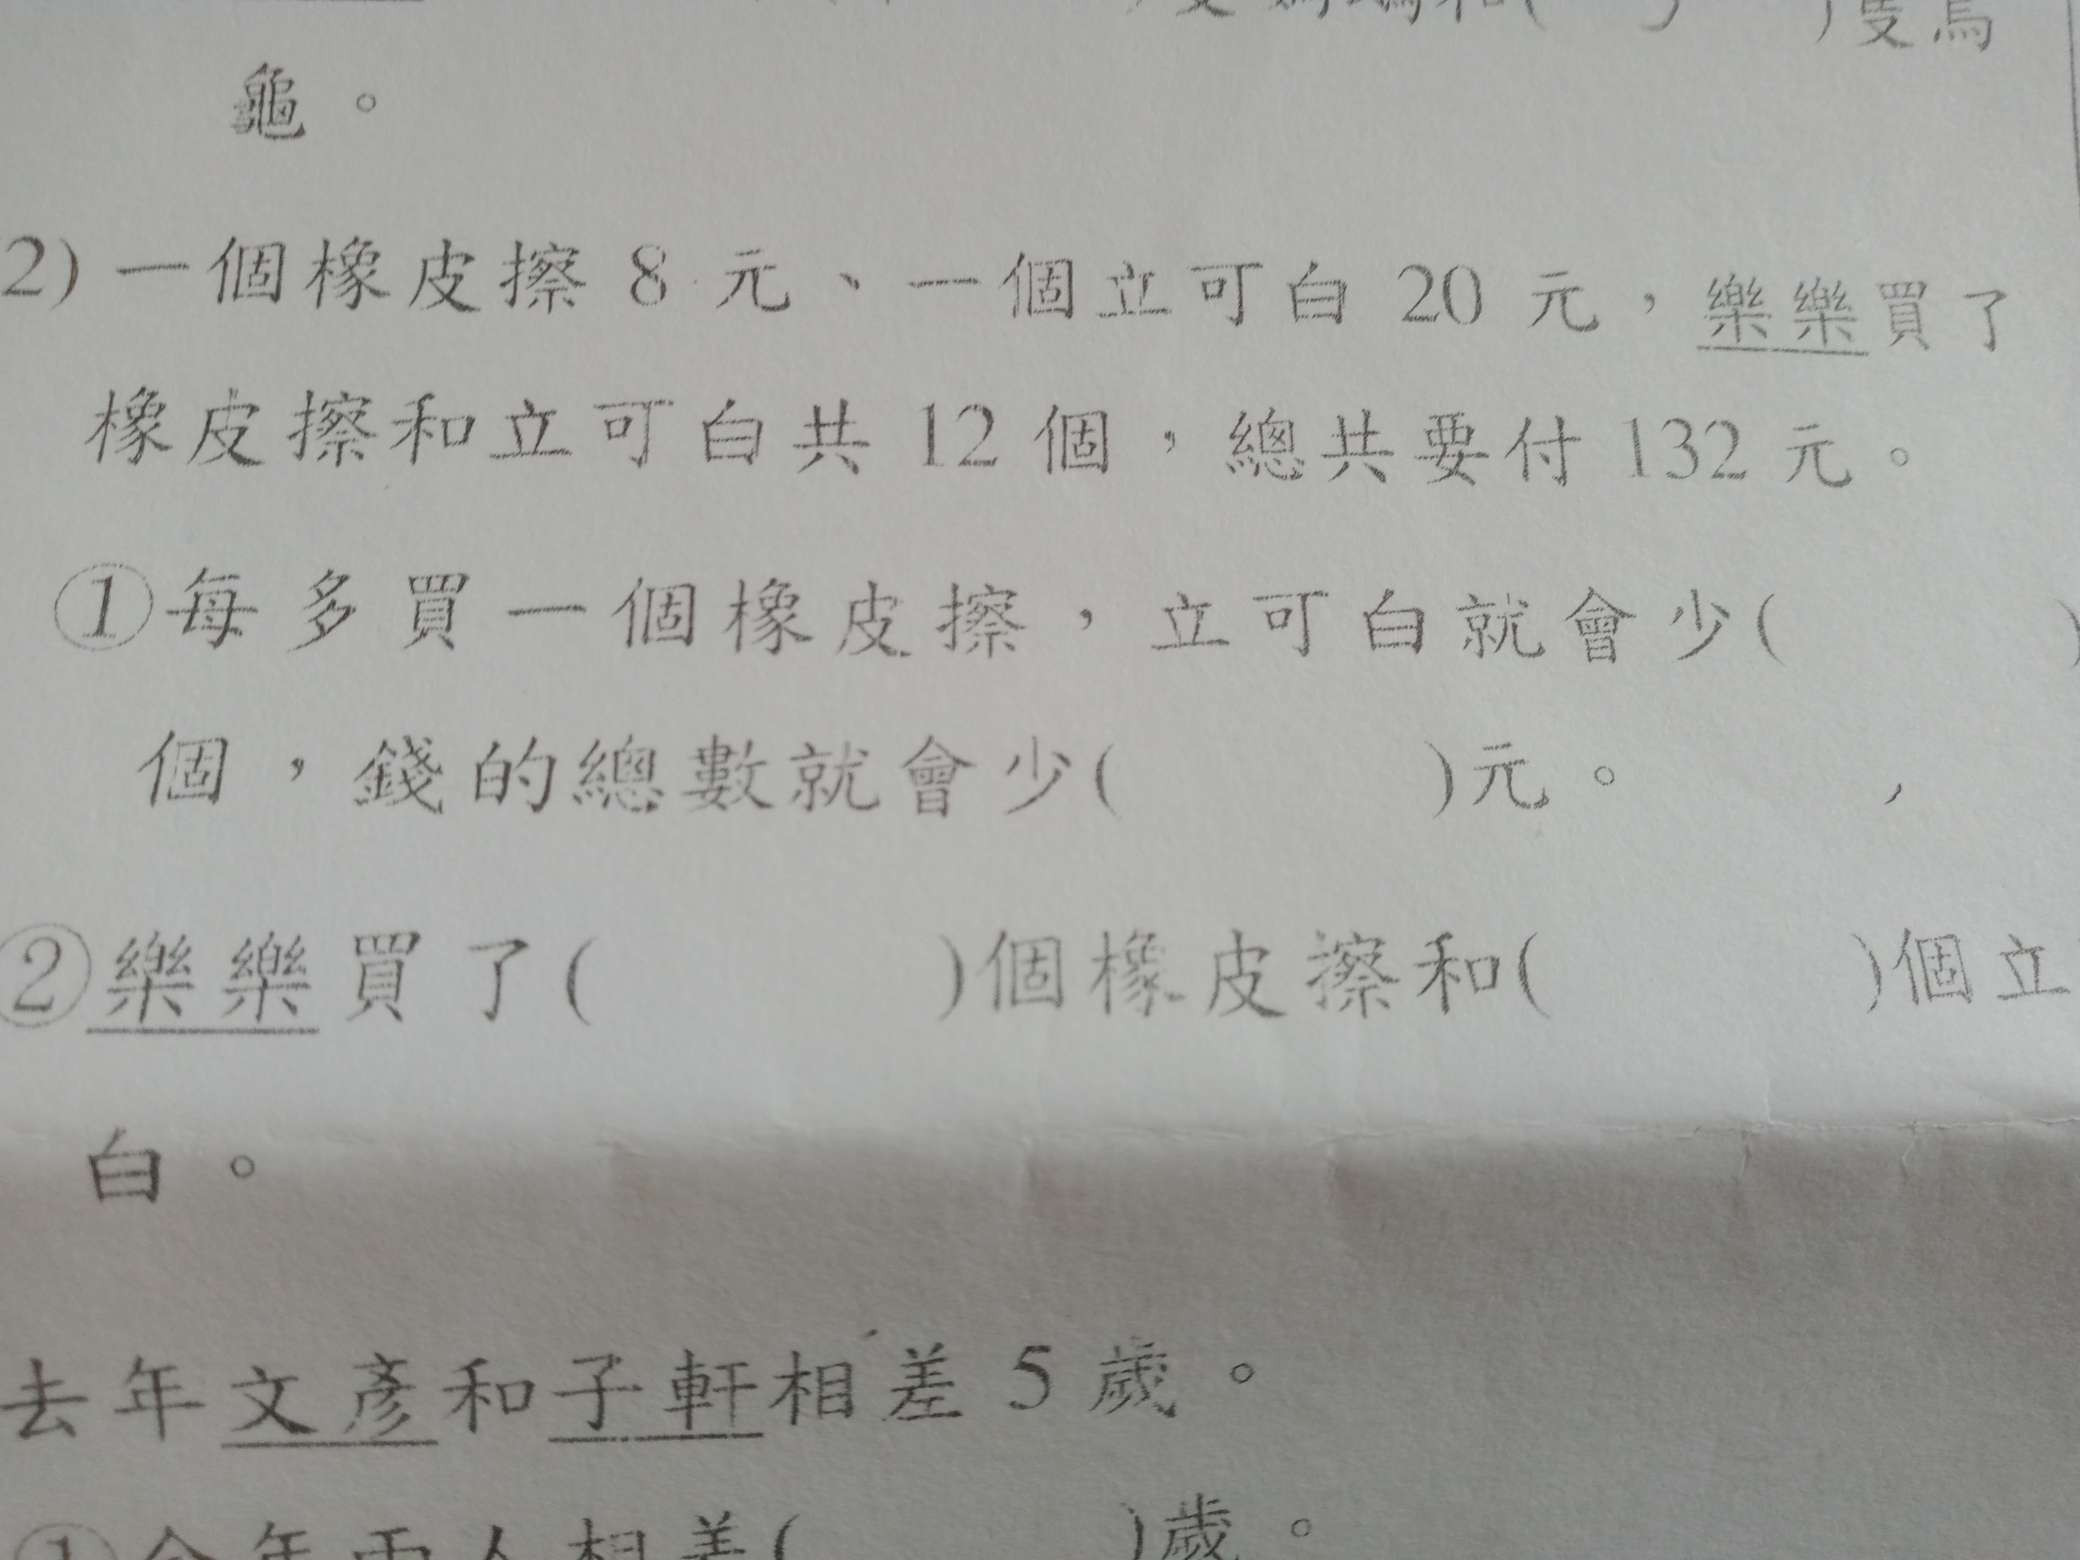 )隻烏
龜。
(2)一個橡皮擦 8 元、一個立可白 20 元，樂樂買了
橡皮擦和立可白共 12 個，總共要付 132 元。
①每多買一個橡皮擦，立可白就會少( )
個，錢的總數就會少( )元。
②樂樂買了( )個橡皮擦和( )個立
白。
去年文彥和子軒相差 5 歲。
①今年兩人相差( )歲。